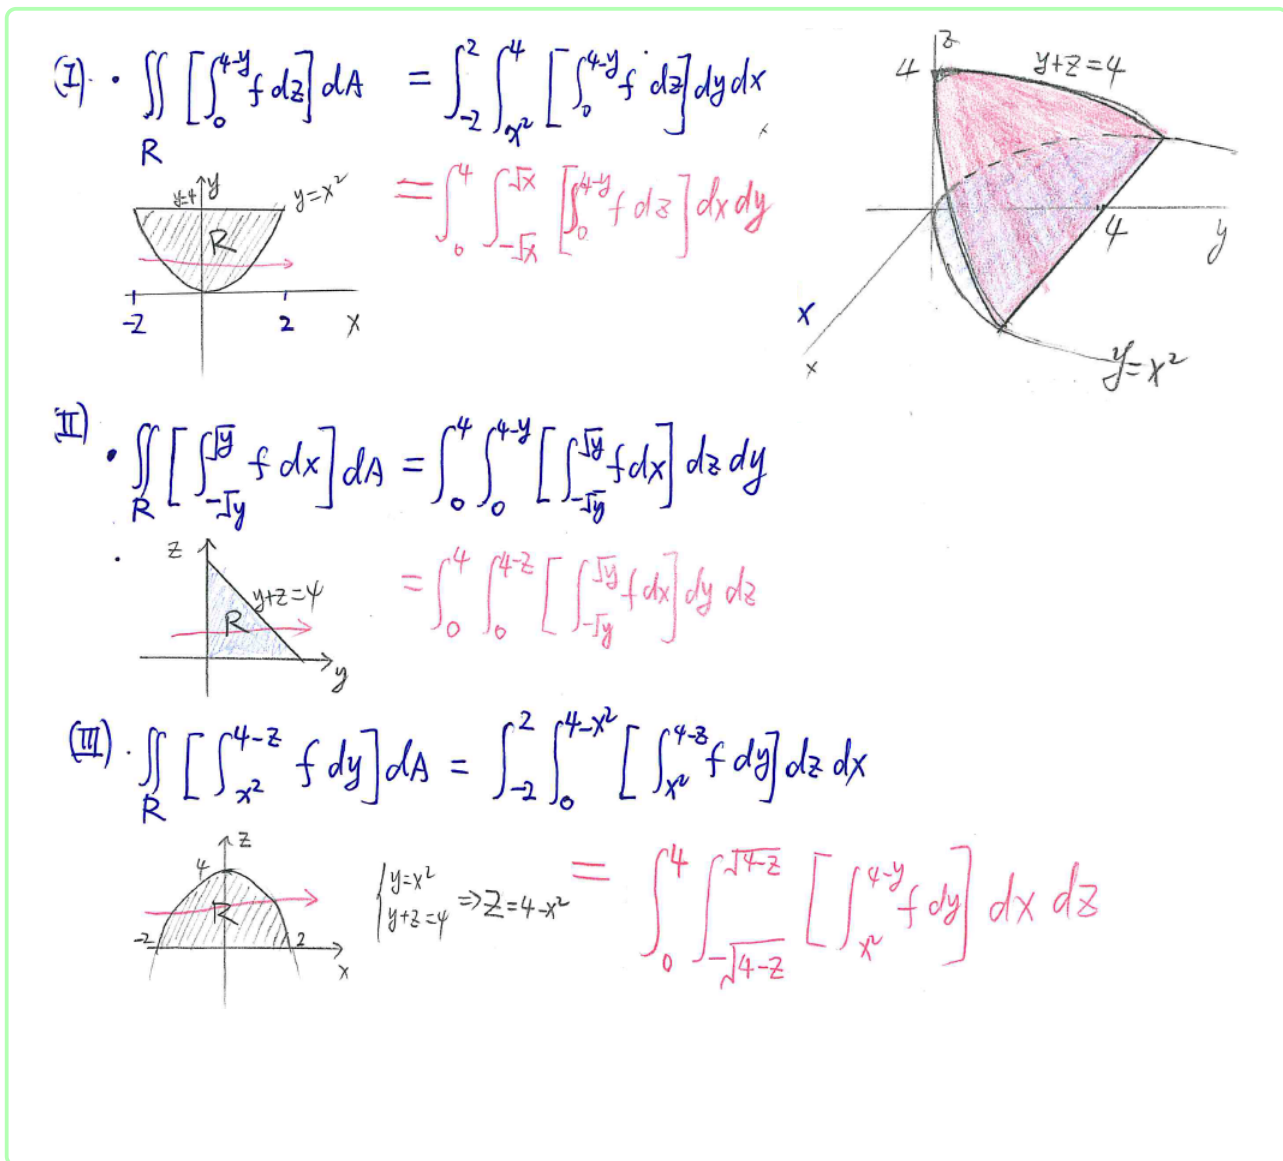 (I). • ∬_R [∫_0^{4-y} f dz] dA = ∫_{-2}^{2} ∫_{x²}^{4} [∫_0^{4-y} f dz] dy dx
= ∫_0^4 ∫_{-√x}^{√x} [∫_0^{4-y} f dz] dx dy
y=4 y y=x²
R
-2 2 x
z
4 y+z=4
4 y
x
x
y=x²
II) • ∬_R [∫_{-√y}^{√y} f dx] dA = ∫_0^4 ∫_0^{4-y} [∫_{-√y}^{√y} f dx] dz dy
= ∫_0^4 ∫_0^{4-z} [∫_{-√y}^{√y} f dx] dy dz
z
y+z=4
R
y
(III). ∬_R [∫_{x²}^{4-z} f dy] dA = ∫_{-2}^{2} ∫_0^{4-x²} [∫_{x²}^{4-z} f dy] dz dx
= ∫_0^4 ∫_{-√4-z}^{√4-z} [∫_{x²}^{4-y} f dy] dx dz
z
4
R
-2 2
x
{y=x²
y+z=4 ⇒ Z=4-x²